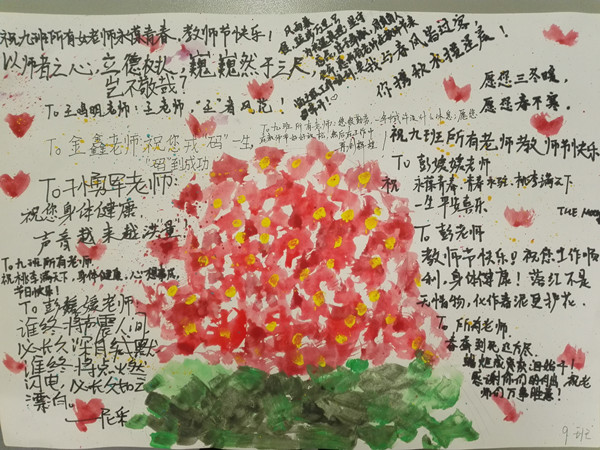 祝九班所有女老师永葆青春,教师节快乐!
以师者之心,立德树人,巍巍然于三尺,
岂不敬哉?
To 王鸣明老师:王老师,“王”者风范!
To 金鑫老师:祝您戎“码”一生
“码”到成功
To 于勇军老师:
祝您身体健康
声音越来越洪亮!
To 九班所有老师
祝桃李满天下,身体健康,心想事成,
节日快乐!
To 彭媛媛老师
谁终将声震人间
必长久深自缄默
谁终将点燃
闪电,必长久如云
漂泊。
——尼采
我与春风皆过客,
你携秋水揽星辰!
愿您三冬暖,
愿您春不寒。
祝九班所有老师教师节快乐
To 彭媛媛老师
祝 永葆青春,青春永驻,桃李满天下
一生平安喜乐
To 彭老师
教师节快乐!祝您工作顺
利,身体健康!落红不是
无情物,化作春泥更护花。
To 所有老师
春蚕到死丝方尽
蜡炬成灰泪始干!
感谢你们的付出,祝老
师们万事胜意!
9班